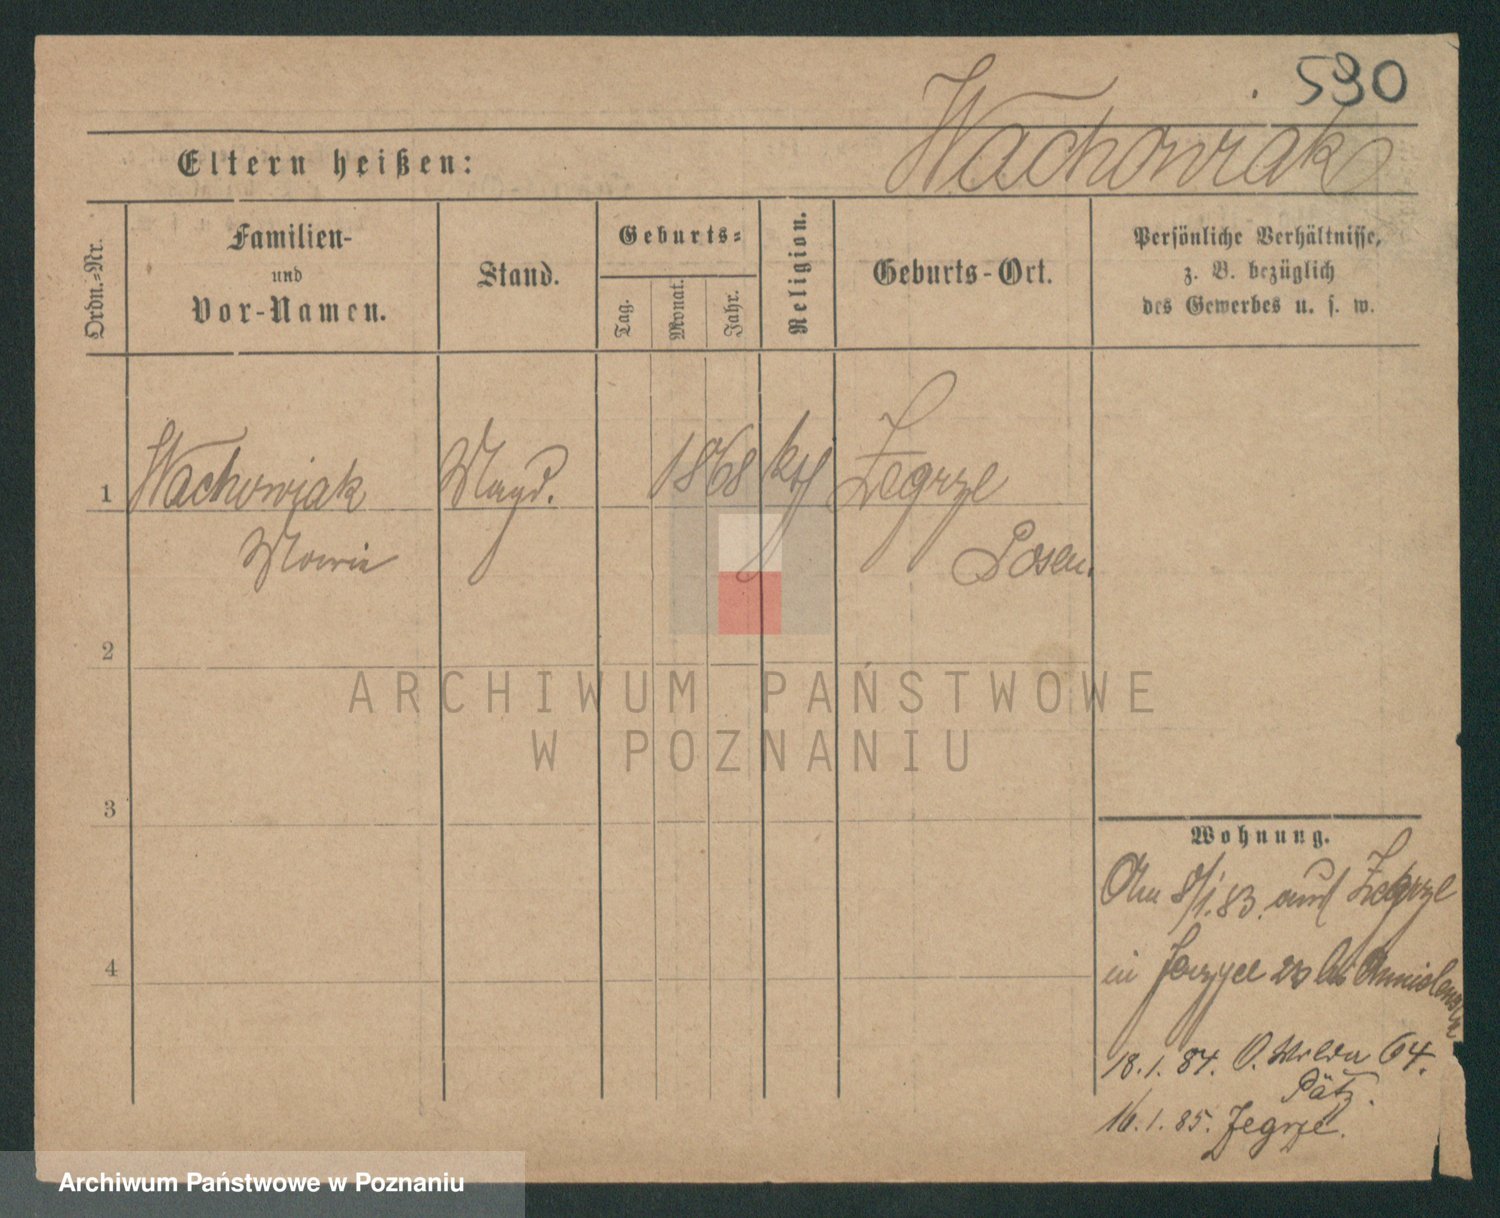 590
Wachowiak
Eltern heißen:
Ordn.-Nr.
Familien-
und
Vor-Namen.
Stand.
Geburts-
Tag.
Monat.
Jahr.
Religion.
Geburts-Ort.
Persönliche Verhältnisse,
z. B. bezüglich
des Gewerbes u. s. w.
1 Wachowiak Magd. 1868 kth Zegrze
Marie Posen.
2
3
4
ARCHIWUM PAŃSTWOWE
W POZNANIU
Wohnung.
Am 8/1.83. aus Zegrze
in 20 bei
18.1.84. O. Wilda 64.
Pätz.
16.1.85. Zegrze.
Archiwum Państwowe w Poznaniu